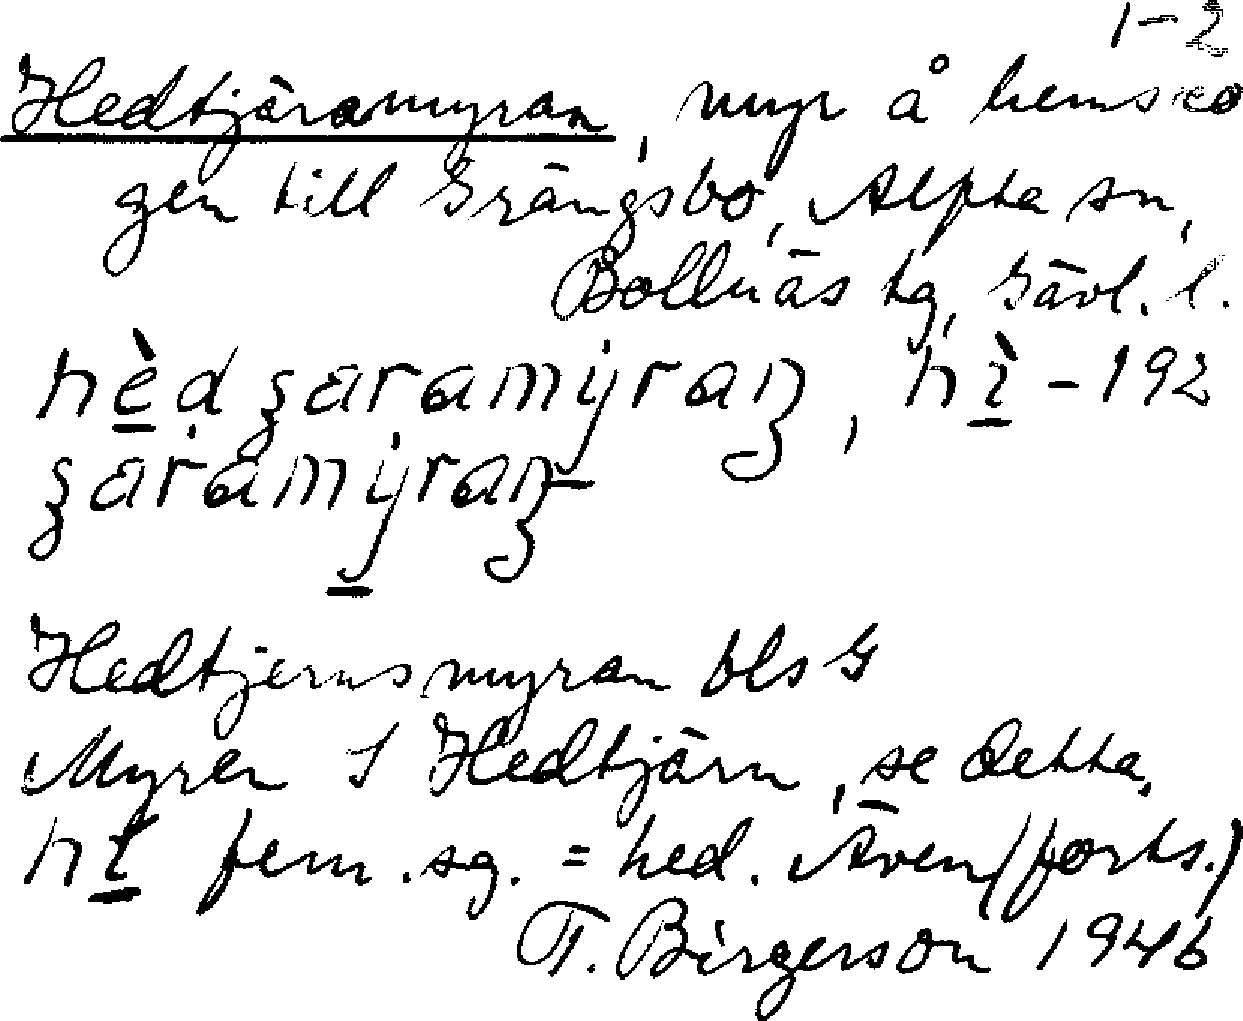 1-2
Hedtjäramyran, myr å hemsko
gen till Grängsbo, Alfta sn,
Bollnäs tg, Gävl. l.
-192
Hedtjernsmyran bls G
Myren S Hedtjärn, se detta,
hī fem. sg. = hed. Även (forts.)
T. Birgerson 1946